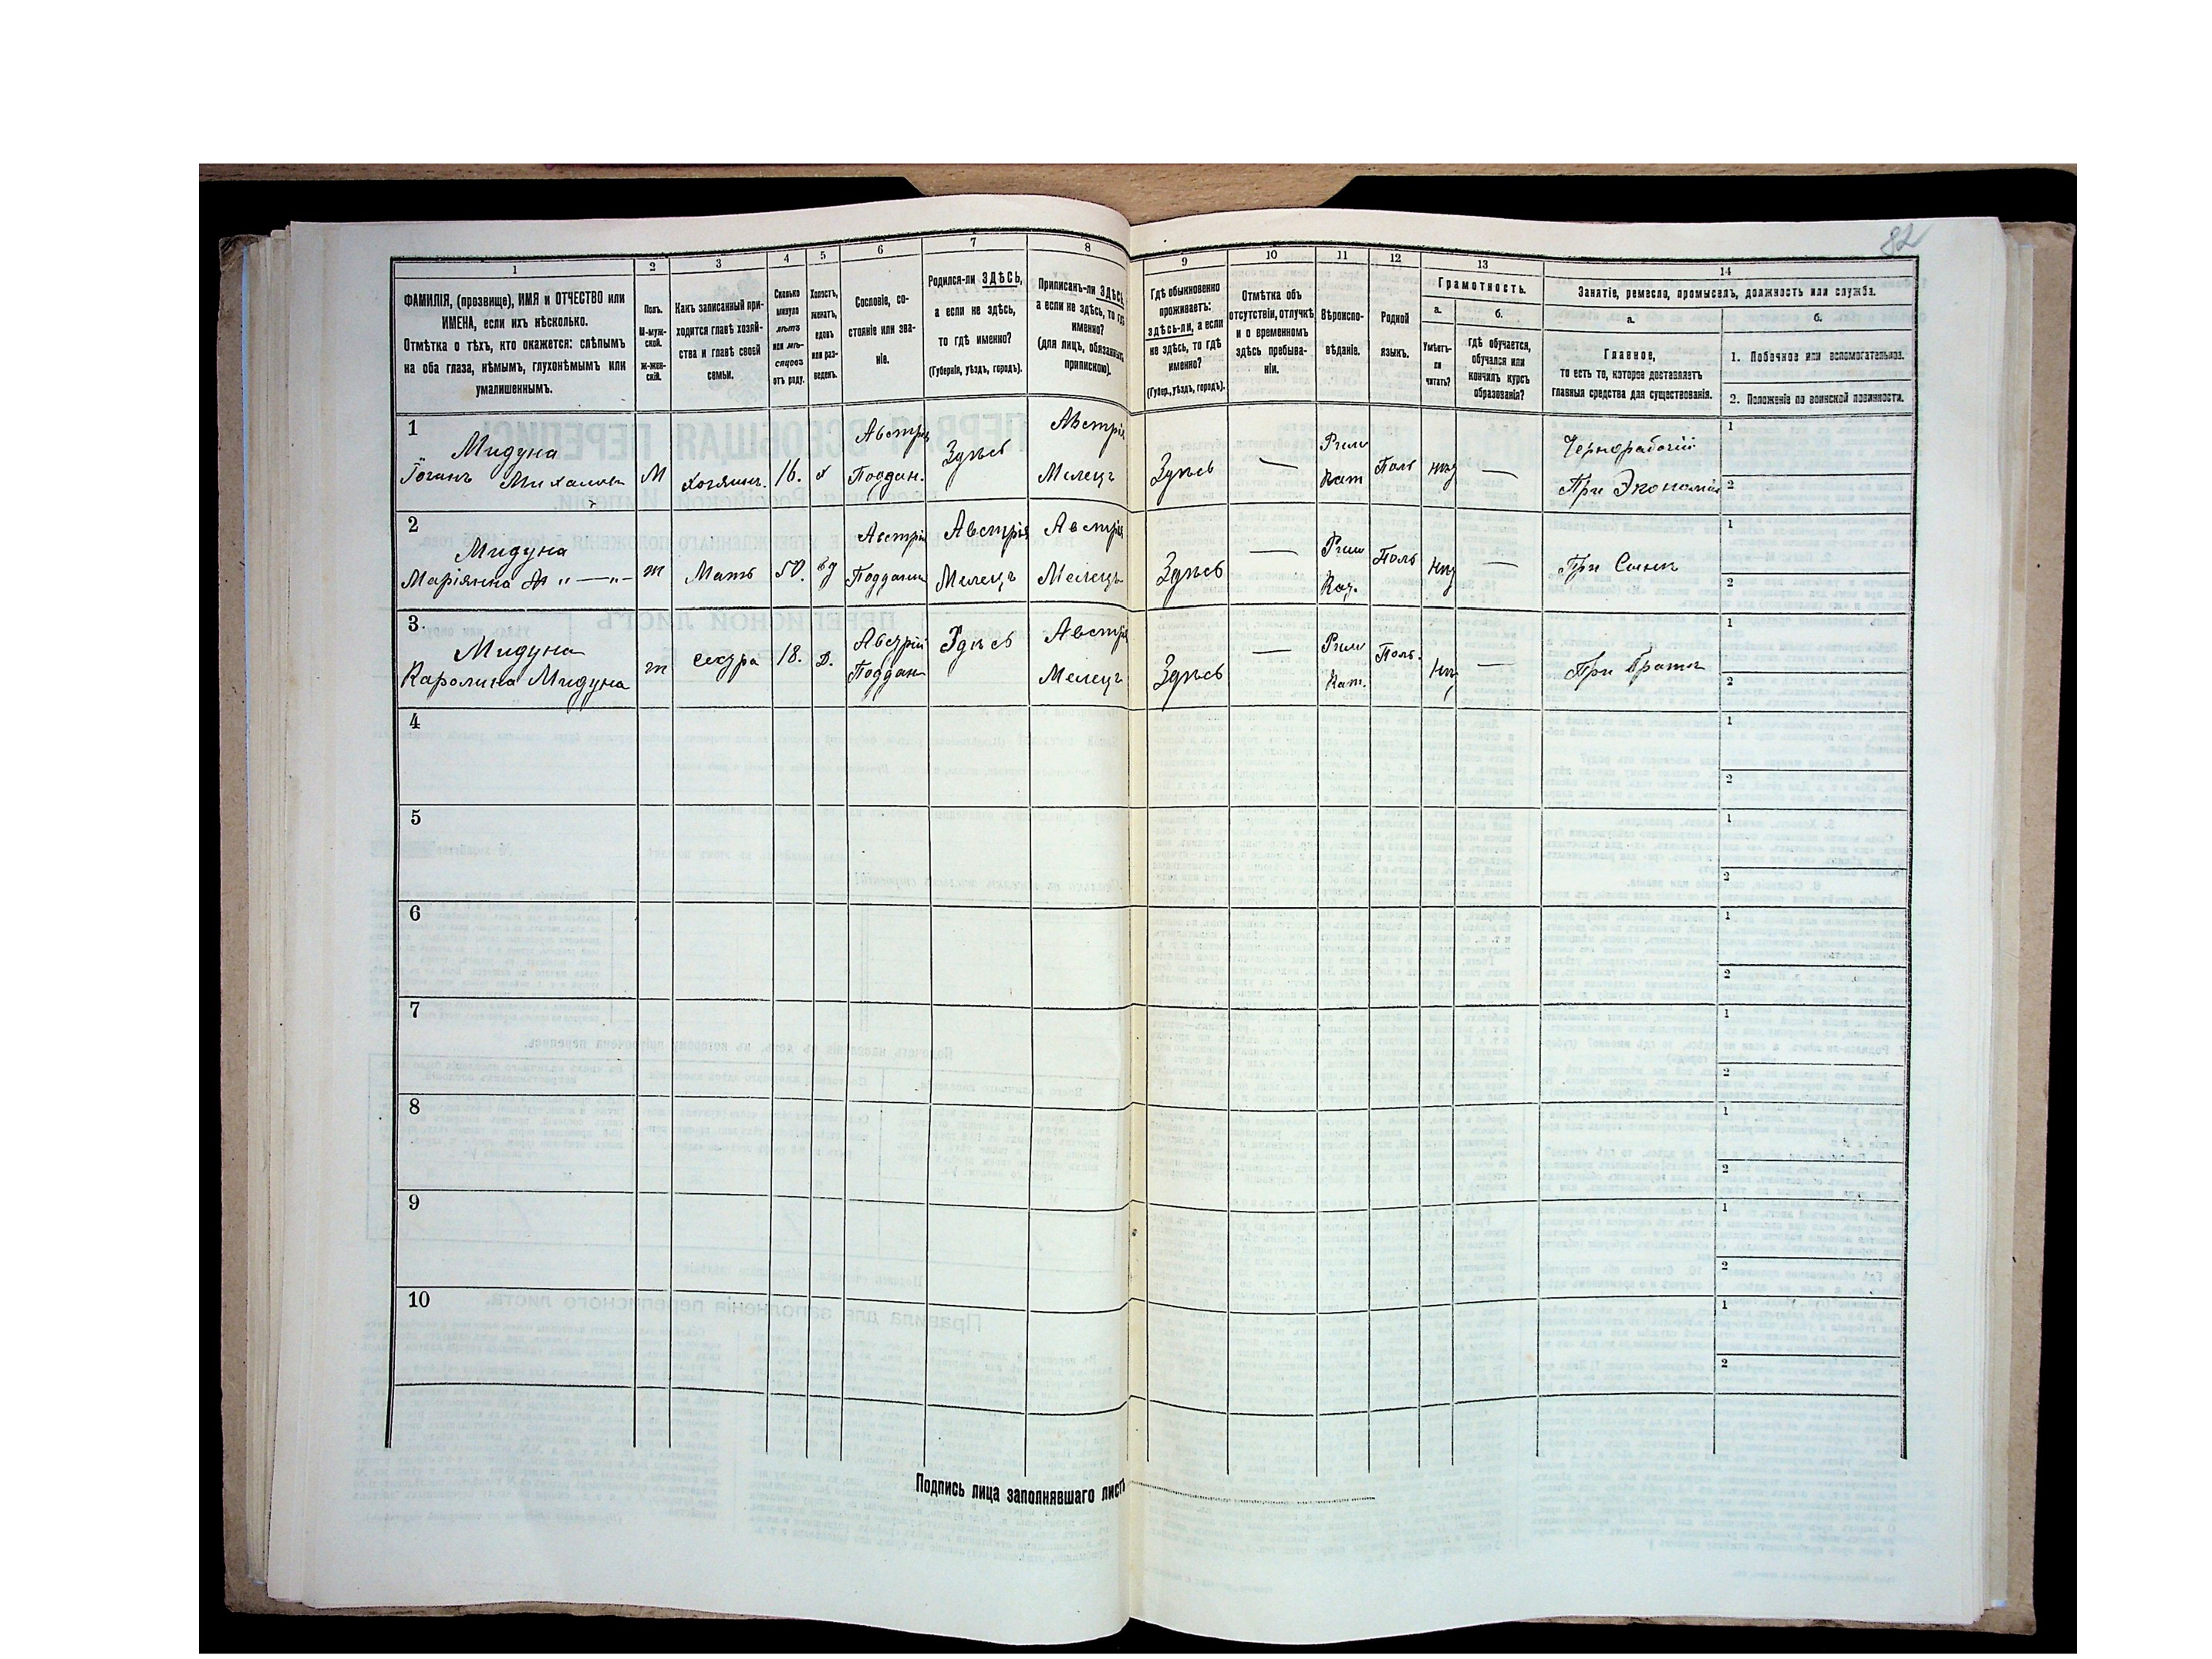 82
1
2
3
4
5
6
7
8
9
10
11
12
13
14
ФАМИЛІЯ, (прозвище), ИМЯ и ОТЧЕСТВО или
ИМЕНА, если ихъ нѣсколько.
Отмѣтка о тѣхъ, кто окажется: слѣпымъ
на оба глаза, нѣмымъ, глухонѣмымъ или
умалишеннымъ.
Полъ.
М-муж-
ской.
Ж-жен-
скій.
Какъ записанный при-
ходится главѣ хозяй-
ства и главѣ своей
семьи.
Сколько
минуло
лѣтъ
или мѣ-
сяцевъ
отъ роду.
Холостъ,
женатъ,
вдовъ
или раз-
веденъ.
Сословіе, со-
стояніе или зва-
ніе.
Родился-ли ЗДѢСЬ,
а если не здѣсь,
то гдѣ именно?
(Губернія, уѣздъ, городъ).
Приписанъ-ли ЗДѢСЬ,
а если не здѣсь, то гдѣ
именно?
(для лицъ, обязанныхъ
припискою).
Гдѣ обыкновенно
проживаетъ:
здѣсь-ли, а если
не здѣсь, то гдѣ
именно?
(Губер., уѣздъ, городъ).
Отмѣтка объ
отсутствіи, отлучкѣ
и о временномъ
здѣсь пребыва-
ніи.
Вѣроиспо-
вѣданіе.
Родной
языкъ.
Грамотность.
а.
Умѣетъ-
ли
читать?
б.
гдѣ обучается,
обучался или
кончилъ курсъ
образованія?
Занятіе, ремесло, промыселъ, должность или служба.
а.
Главное,
то есть то, которое доставляетъ
главныя средства для существованія.
б.
1. Побочное или вспомогательное.
2. Положеніе по воинской повинности.
1
Мидуна
М
Хозяинъ.
16.
х
Поддан.
Здѣсь
Мелецъ
Здѣсь
—
Рим
Кат
Поль
нѣт
—
Чернорабочій
При Экономіи
1
2
2
Мидуна
Маріянна " — "
ж
Мать
50.
вд
Австрія
Мелецъ
Австрія
Мелецъ
Здѣсь
—
Рим
Поль
—
При Сынѣ
1
2
3.
Мидуна
Каролина Мидуна
ж
сестра
18.
Д.
Поддан
Здѣсь
Мелецъ
Здѣсь
—
Рим
Кат.
Поль.
—
При Братѣ
1
2
4
1
2
5
1
2
6
1
2
7
1
2
8
1
2
9
1
2
10
1
2
Подпись лица заполнявшаго листъ